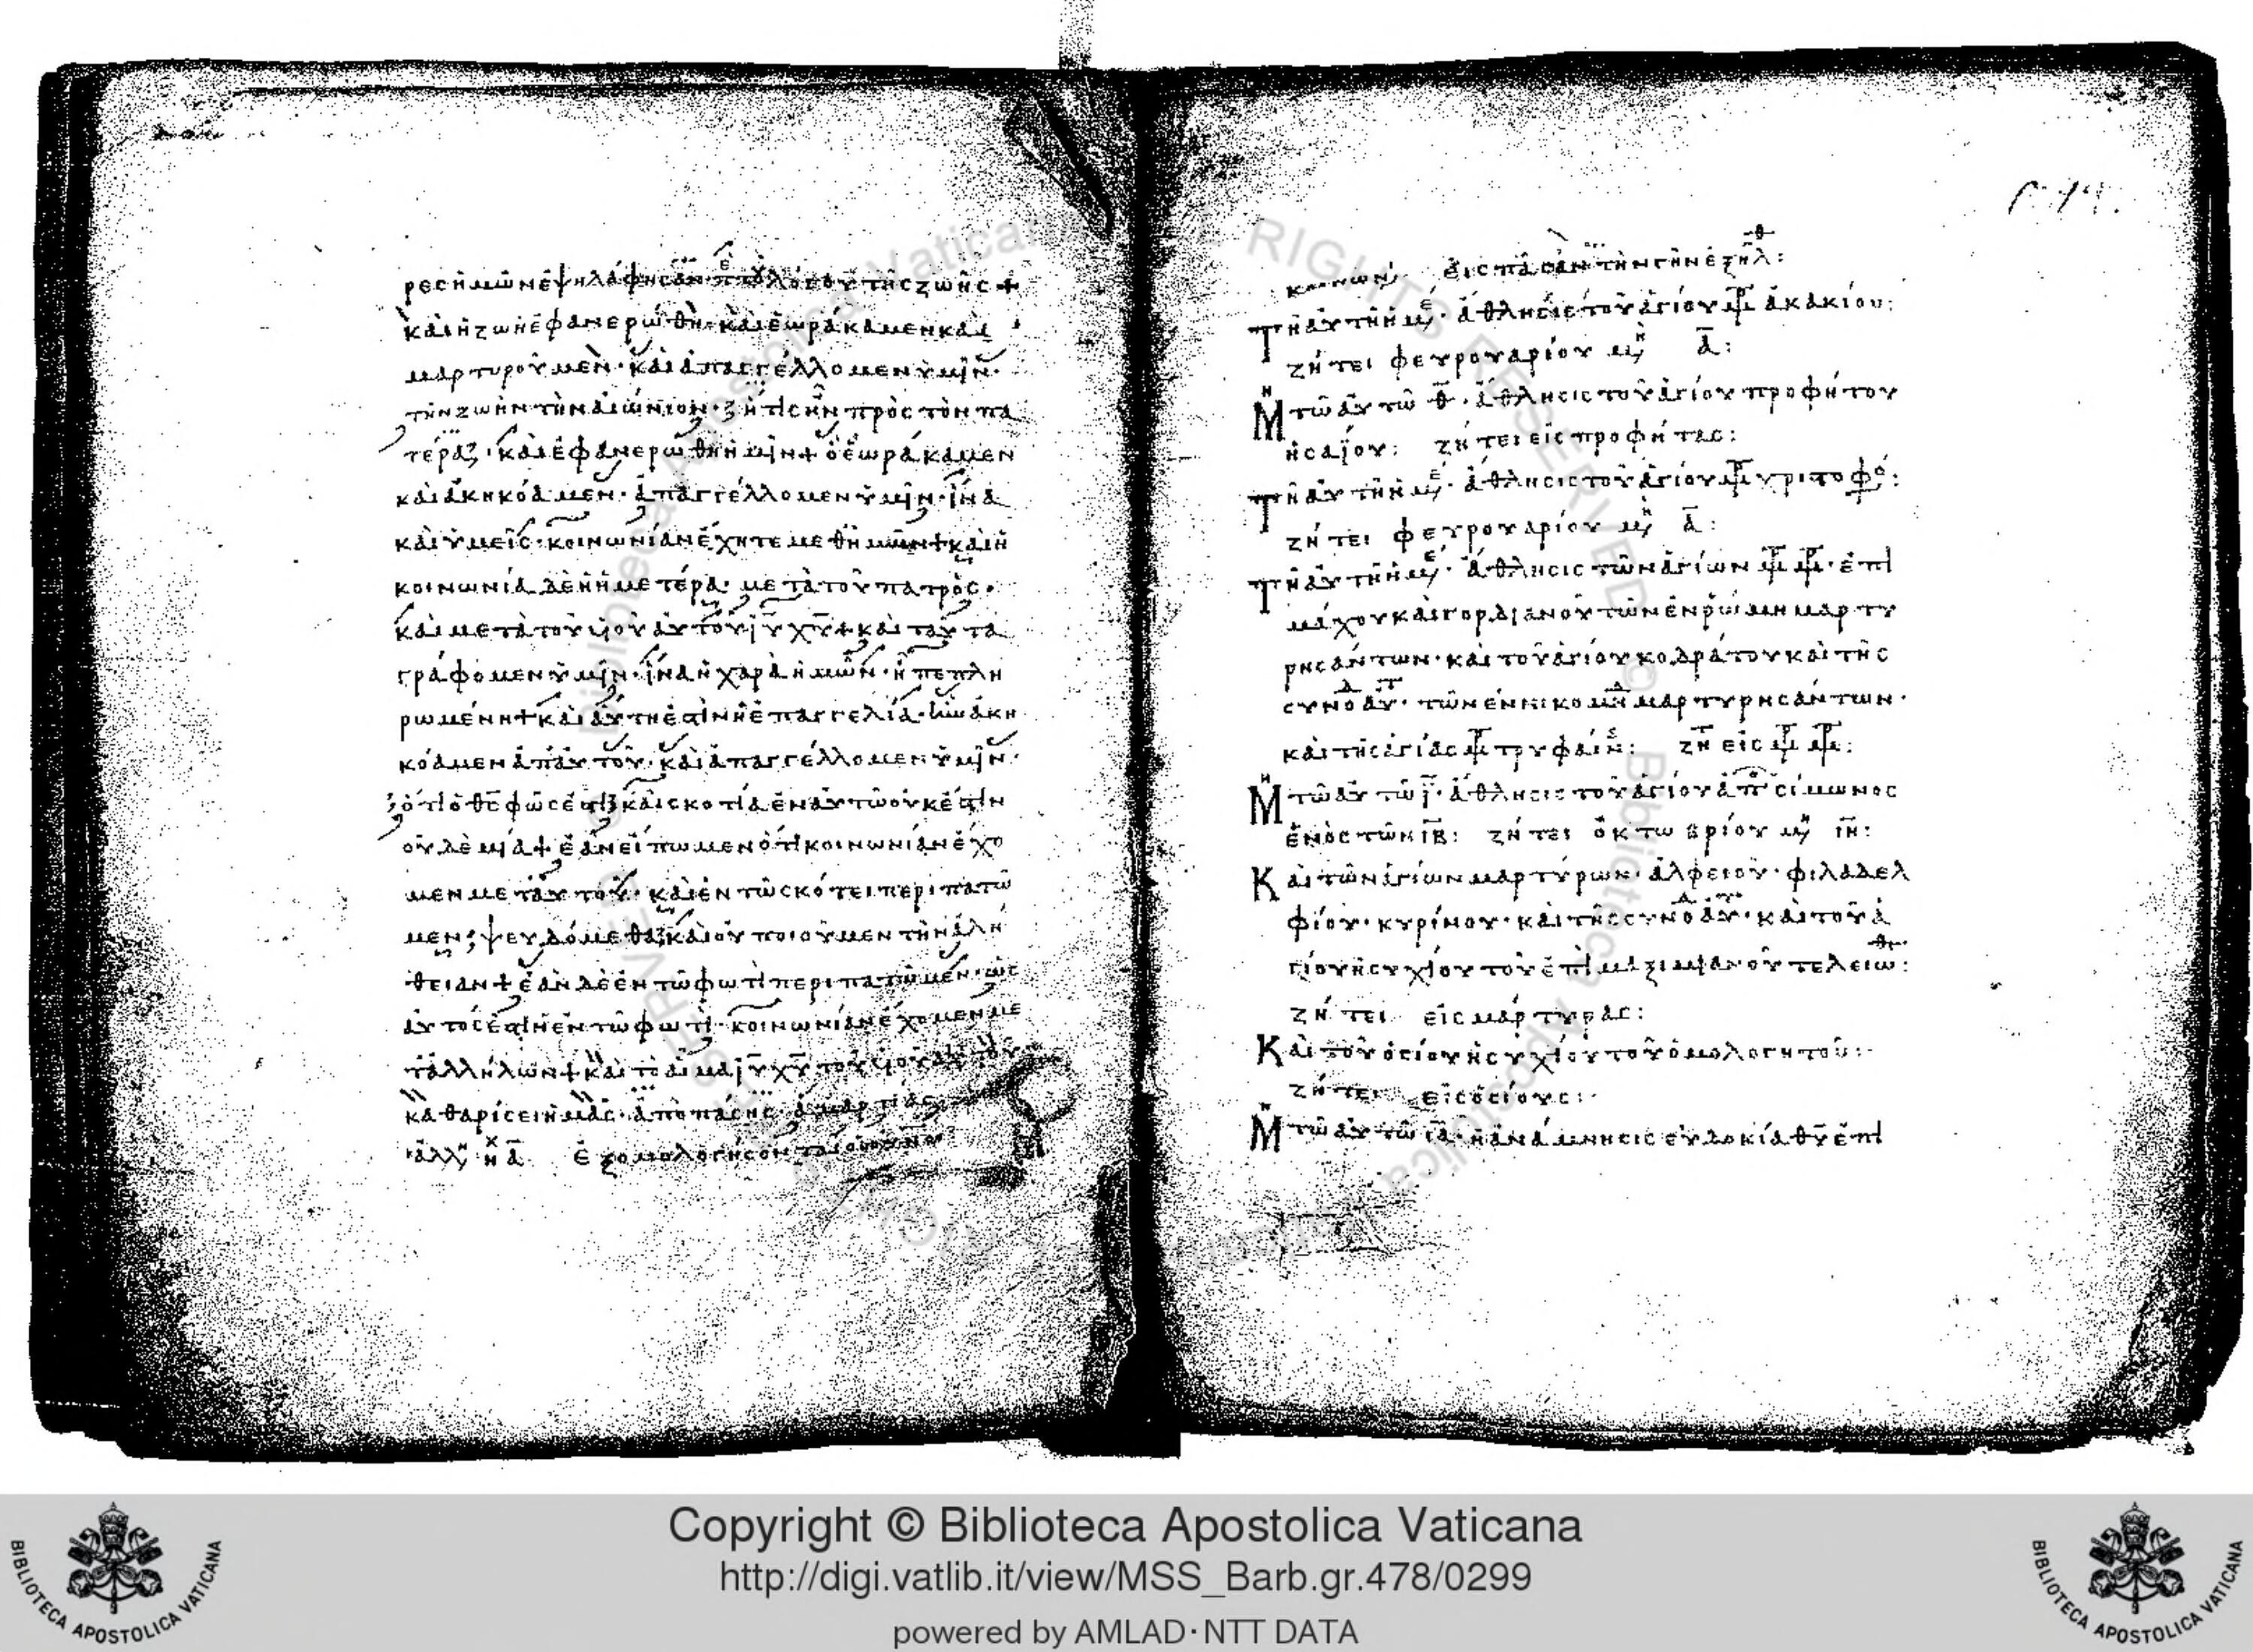 ρεσ ἡμῶν ἐψηλάφησαν· περὶ τοῦ λόγου τῆς ζωῆς +
καὶ ἡ ζωὴ ἐφανερώθη· καὶ ἑωράκαμεν καὶ
μαρτυροῦμεν· καὶ ἀπαγγέλλομεν ὑμῖν·
τὴν ζωὴν τὴν αἰώνιον· ἥτις ἦν πρὸς τὸν πα
τέρα· καὶ ἐφανερώθη ἡμῖν + ὃ ἑωράκαμεν
καὶ ἀκηκόαμεν· ἀπαγγέλλομεν ὑμῖν· ἵνα
καὶ ὑμεῖς· κοινωνίαν ἔχητε μεθ ἡμῶν + καὶ ἡ
κοινωνία δὲ ἡ ἡμετέρα· μετὰ τοῦ πατρὸς·
καὶ μετὰ τοῦ υἱοῦ αὐτοῦ ἰῦ χῦ + καὶ ταῦτα
γράφομεν ὑμῖν· ἵνα ἡ χαρὰ ἡμῶν· ἦ πεπλη
ρωμένη + καὶ αὕτη ἐστὶν ἡ ἐπαγγελία· ἣν ἀκη
κόαμεν ἀπ αὐτοῦ· καὶ ἀπαγγέλλομεν ὑμῖν·
ὅτι ὁ θς φῶς ἐστι καὶ σκοτία ἐν αὐτῶ οὐκ ἔστιν
οὐδὲ μία + ἐὰν εἴπωμεν ὅτι κοινωνίαν ἔχο
μεν μετ αὐτοῦ· καὶ ἐν τῶ σκότει περιπατῶ
μεν· ψευδόμεθα καὶ οὐ ποιοῦμεν τὴν ἀλή
θειαν + ἐὰν δὲ ἐν τῶ φωτὶ περιπατῶμεν· ὡς
αὐτός ἐστιν ἐν τῶ φωτὶ· κοινωνίαν ἔχομεν με
τ ἀλλήλων + καὶ τὸ αἷμα ἰῦ χῦ τοῦ υἱοῦ αὐτοῦ
καθαρίσει ἡμᾶς· ἀπὸ πάσης ἁμαρτίας
ἐξομολογήσονται οἱ οὐρανοὶ
κοινων εἰς πᾶσαν τὴν γῆν ἐξῆλθ:
Τῆ αὐτῆ ἡμέ· ἄθλησις τοῦ ἁγίου μρ ἀκακίου:
ζήτει φευρουαρίου μη ᾱ:
Μη τῶ αὐτῶ θ̄· ἄθλησις τοῦ ἁγίου προφήτου
ἡσαΐου: ζήτει εἰς προφήτας:
Τῆ αὐτῆ ἡμέ· ἄθλησις τοῦ ἁγίου μρ χριστοφό:
ζήτει φευρουαρίου μη ᾱ:
Τῆ αὐτῆ ἡμέ· ἄθλησις τῶν ἁγίων μρ μρ· ἐπι
μάχου καὶ γορδιανοῦ τῶν ἐν ῥώμη μαρτυ
ρησάντων· καὶ τοῦ ἁγίου κοδράτου καὶ τῆς
συνοδ αὐτ· τῶν ἐν νικομηδ μαρτυρησάντων·
καὶ τῆς ἁγίας μρ τρυφαίνης: ζητ εἰς μρ μρ:
Μη τῶ αὐτῶ ῑ· ἄθλησις τοῦ ἁγίου ἀπο σίμωνος
ἑνὸς τῶν ιβ: ζήτει ὀκτωβρίου μη ιη:
Καὶ τῶν ἁγίων μαρτύρων· ἀλφειοῦ· φιλαδελ
φίου· κυρίνου· καὶ τῆς συνοδ αὐτ· καὶ τοῦ ἁ
γίου ἡσυχίου τοῦ ἐπὶ μαξιμιανοῦ τελειωθ:
ζήτει εἰς μάρτυρας:
Καὶ τοῦ ὁσίου ἡσυχίου τοῦ ὁμολογητοῦ:
ζήτει εἰς ὁσίους:
Μη τῶ αὐτῶ ια· ἡ ἀνάμνησις εὐδοκία θῦ ἐπι
RIGHTS RESERVED © Biblioteca Apostolica Vaticana
Copyright © Biblioteca Apostolica Vaticana
http://digi.vatlib.it/view/MSS_Barb.gr.478/0299
powered by AMLAD·NTT DATA
BIBLIOTECA APOSTOLICA VATICANA
BIBLIOTECA APOSTOLICA VATICANA